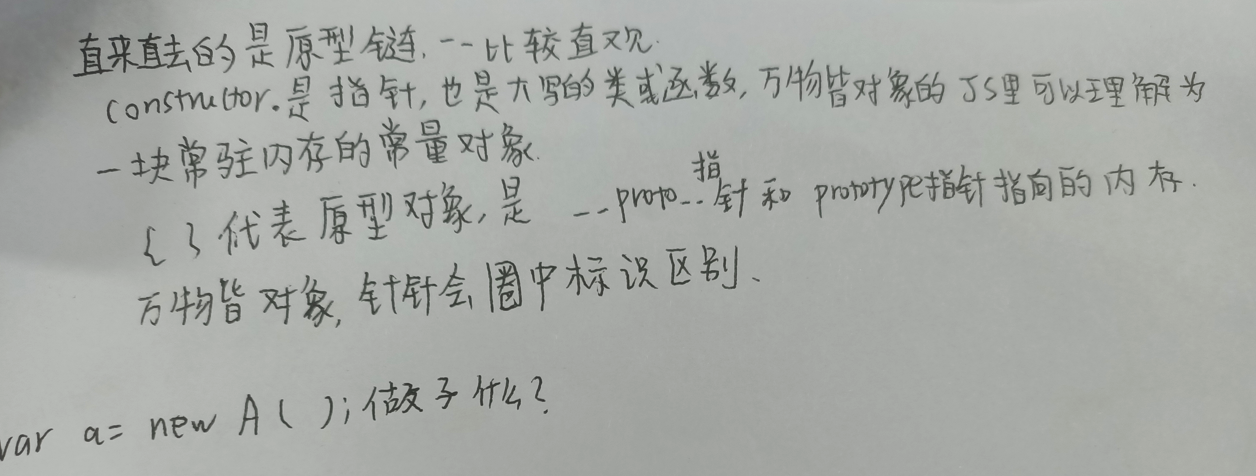 直来直去的是原型链，--比较直观.
constructor.是指针,也是大写的类或函数,万物皆对象的JS里可以理解为
一块常驻内存的常量对象.
{ } 代表原型对象,是 --proto--指针和 prototype指针指向的内存.
万物皆对象,针针会圈中标识区别、
var a= new A ( );做了什么?